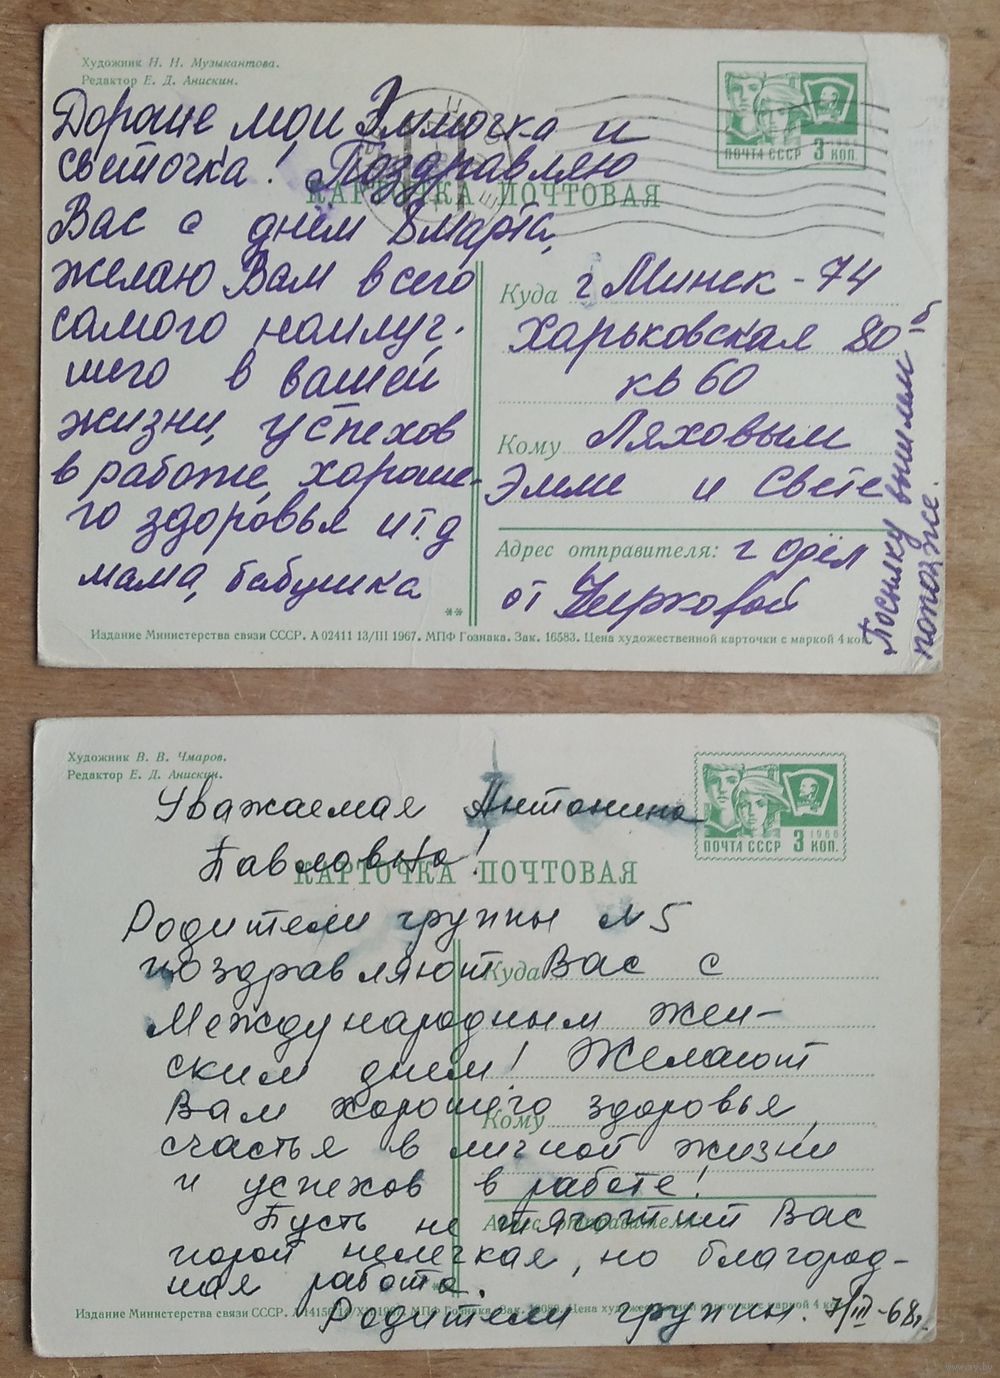 Художник Н. Н. Музыкантова.
Редактор Е. Д. Анискин.
ПОЧТА СССР 3 КОП.
1966
КАРТОЧКА ПОЧТОВАЯ
Дорогие мои Эммочка и
Светочка! Поздравляю
Вас с днём 8 марта,
желаю Вам всего
самого наилуч-
шего в вашей
жизни, успехов
в работе, хороше-
го здоровья и т.д
мама, бабушка
Куда г Минск - 74
Харьковская 80-б
кв 60
Кому Ляховым
Эмме и Свете
Адрес отправителя: г Орёл
от
Посылку вышлем
попозже.
**
Издание Министерства связи СССР. А 02411 13/III 1967. МПФ Гознака. Зак. 16583. Цена художественной карточки с маркой 4 коп.
Художник В. В. Чмаров.
Редактор Е. Д. Анискин.
ПОЧТА СССР 3 КОП.
1966
КАРТОЧКА ПОЧТОВАЯ
Уважаемая Антонина
Павловна!
Родители группы N 5
поздравляют Вас с
Международным жен-
ским днем! Желают
Вам хорошего здоровья,
счастья в личной жизни
и успехов в работе!
Пусть не тяготит Вас
порой нелегкая, но благород-
ная работа.
Родители группы. 7/III-68г.
Куда
Кому
Адрес отправителя:
Издание Министерства связи СССР. МПФ Гознака. Зак. Цена художественной карточки с маркой 4 коп.